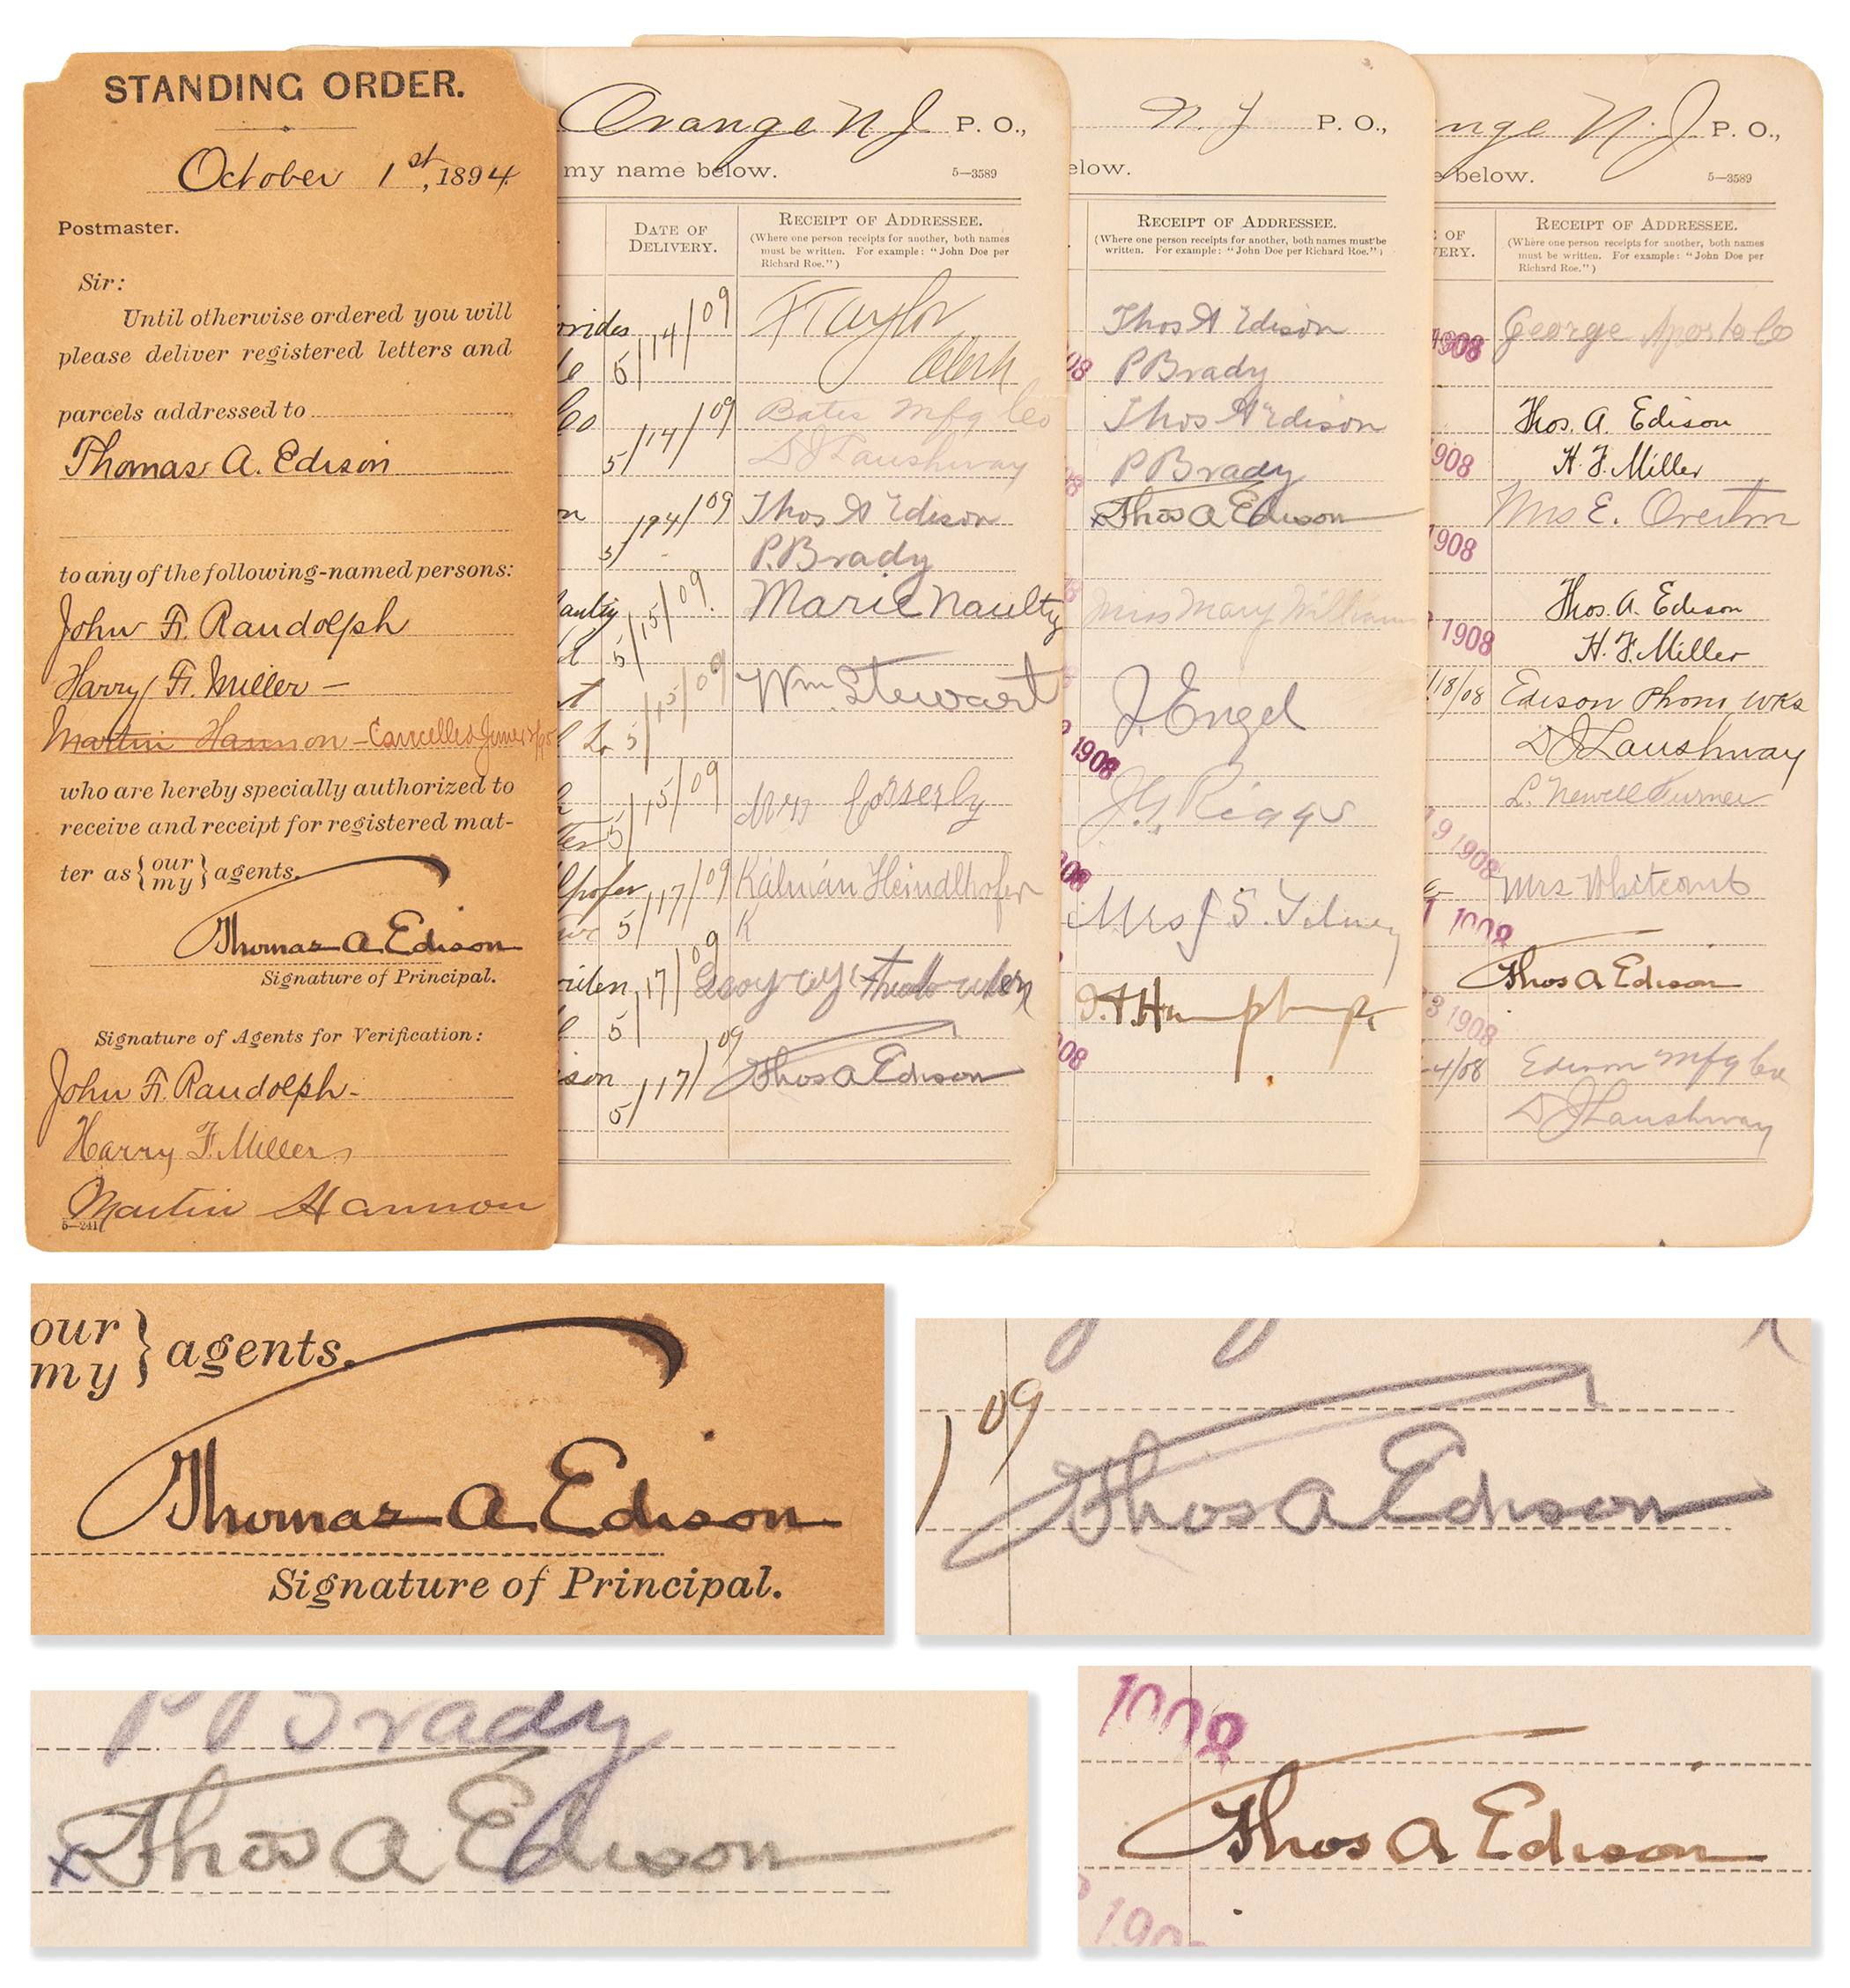 STANDING ORDER.
October 1st, 1894.
Postmaster.
Sir:
Until otherwise ordered you will
please deliver registered letters and
parcels addressed to
Thomas A. Edison
to any of the following-named persons:
John F. Randolph
Harry F. Miller –
Martin Hannon – Cancelled June
who are hereby specially authorized to
receive and receipt for registered mat-
ter as { our my } agents.
Thomas A Edison
Signature of Principal.
Signature of Agents for Verification:
John F. Randolph-
Harry F. Miller
Martin Hannon
5—241
Orange N J P. O.,
my name below. 5—3589
DATE OF DELIVERY.
RECEIPT OF ADDRESSEE.
(Where one person receipts for another, both names
must be written. For example: "John Doe per
Richard Roe.")
5/14/09 F Taylor
Clerk
Co 5/14/09 Bates Mfg Co
D J Laushway
Thos A Edison
P. Brady
aulty 5/15/09. Marie Naulty
5/15/09 Wm. Stewart
5/15/09 Mrs
lhofer 5/17/09 Kálmán Heindlhofer
K
5/17/09
ison 5/17/09 Thos A Edison
N. J P. O.,
elow.
RECEIPT OF ADDRESSEE.
(Where one person receipts for another, both names must be
written. For example: "John Doe per Richard Roe.")
Thos A Edison
08 P Brady
Thos A Edison
P Brady
x Thos A Edison
Miss Mary William
J. Engel
1908
J. G. Riggs
08
Mrs J S. Tilney
08
nge N. J P. O.,
below. 5—3589
OF
ERY.
RECEIPT OF ADDRESSEE.
(Where one person receipts for another, both names
must be written. For example: "John Doe per
Richard Roe.")
1908 George
Thos. A. Edison
1908 H. F. Miller
Mrs E. Overton
1908
Thos. A. Edison
1908 H. F. Miller
/18/08 Edison Phono Wks
D J Laushway
L. Newell Turner
19 1908
Mrs Whitcomb
1908
Thos A Edison
3 1908
-4/08 Edison Mfg Co
D J Laushway
our my } agents.
Thomas A Edison
Signature of Principal.
09
Thos A Edison
P Brady
x Thos A Edison
1908
Thos A Edison
190